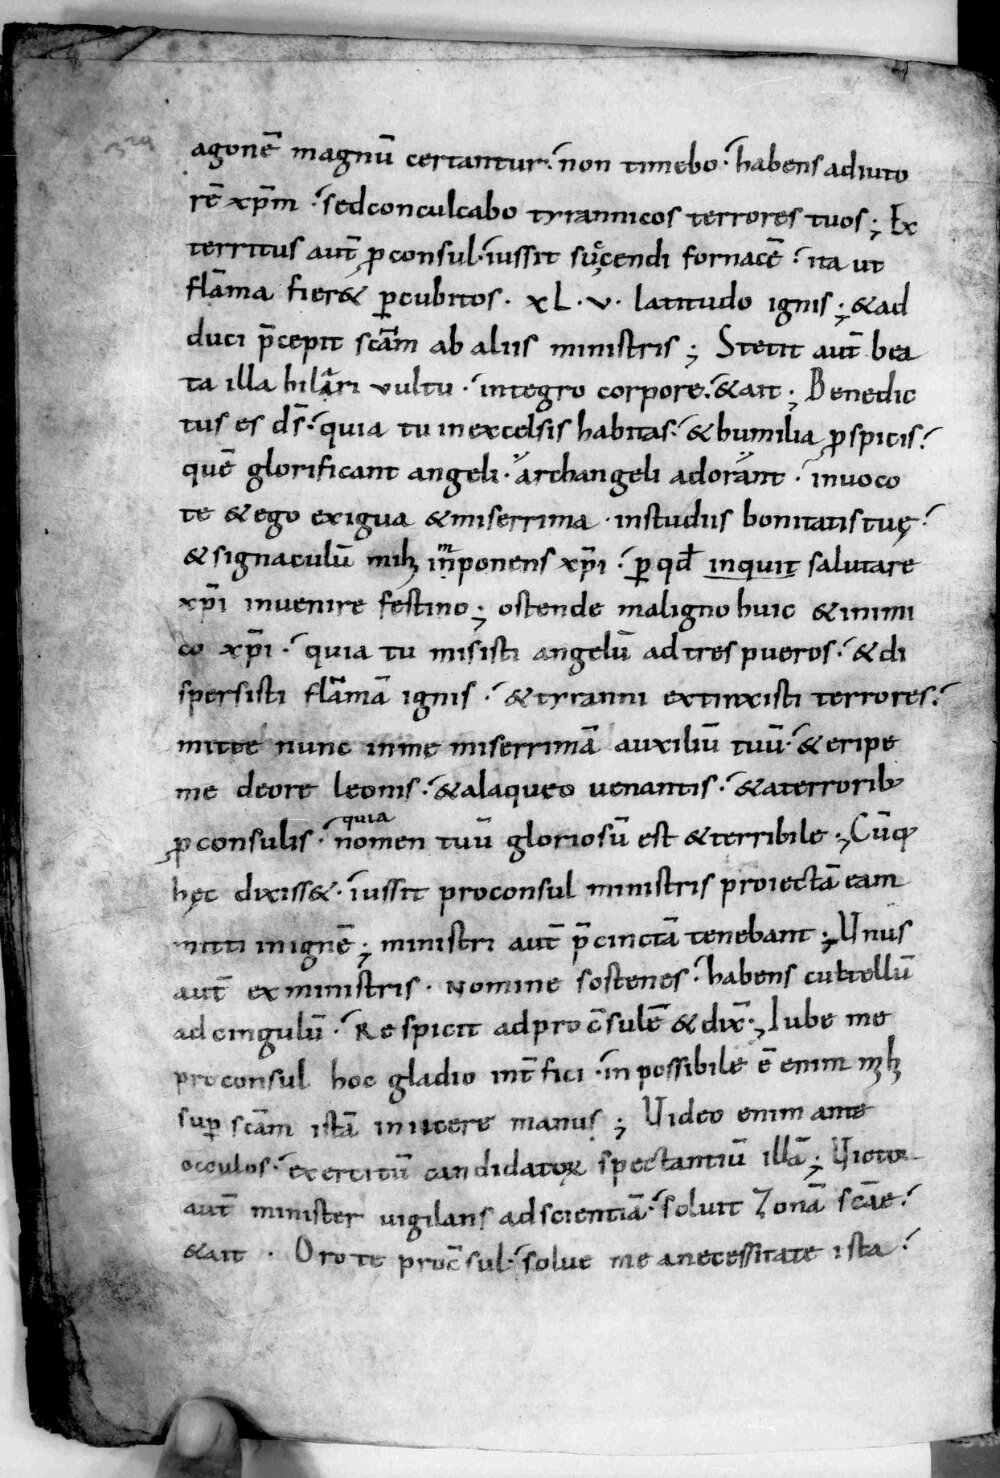 agonē magnū certantur · non timebo · habens adiuto
rē xp̄m · sed conculcabo tyrannicos terrores tuos ; Ex
territus aut̄ ꝓconsul · iussit sųcendi fornacē · ita ut
flāma fier& ꝑ cubitos · xL · v · latitudo ignis ; & ad
duci p̄cepit sc̄am ab aliis ministris ; Stetit aut̄ bea
ta illa hilari vultu · integro corpore · & ait ; Benedic
tus es ds̄ · quia tu in excelsis habitas · & humilia ꝓspicis ·
quē glorificant angeli · archangeli adorant · invoco
te & ego exigua & miserrima · in studiis bonitatis tuę ·
& signaculū mihi inponens xp̄i · ꝑ qd̄ inquit salutare
xp̄i invenire festino ; ostende maligno huic & inimi
co xp̄i · quia tu misisti angelū ad tres pueros · & di
spersisti flāmā ignis · & tyranni extinxisti terrores ·
mitte nunc in me miserrimā auxiliū tuū · & eripe
me de ore leonis · & a laqueo venantis · & a terrorib;
quia
ꝓconsulis · nomen tuū gloriosū est & terribile ; Cūq;
hęc dixiss& · iussit proconsul ministris proiectā eam
mitti in ignē ; ministri aut̄ p̄cinctā tenebant ; Unus
aut̄ ex ministris · Nomine sostenes · habens cultellū
ad cingulū · Respicit ad proc̄sulē & dix̄ ; Iube me
proconsul hoc gladio int̄fici · inpossibile ē enim m̄h
suꝑ sc̄am istā iniicere manus ; Video enim ante
occulos · exercitū candidatoꝝ spectantiū illā ; Victor
aut̄ minister vigilans ad scientiā · solvit Zonā sc̄ae ·
& ait · Oro te proc̄sul · solve me a necessitate ista ·